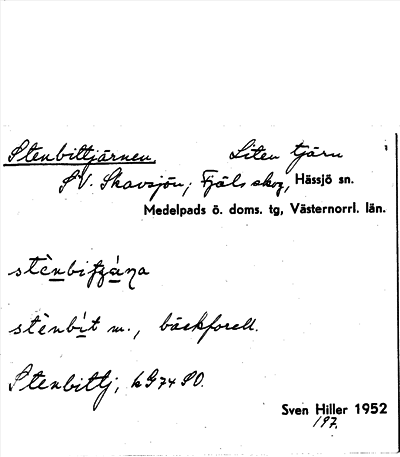 Stenbittjärnen, Liten tjärn
SV. Skavsjön, Fjäls skog, Hässjö sn.
Medelpads ö. doms. tg, Västernorrl. län.
stènbitjána
stènbít m., bäckforell.
Stenbittj, kG74 SO.
Sven Hiller 1952
197.